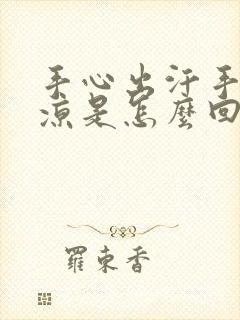 手心出汗手
凉是怎麼回
羅東香